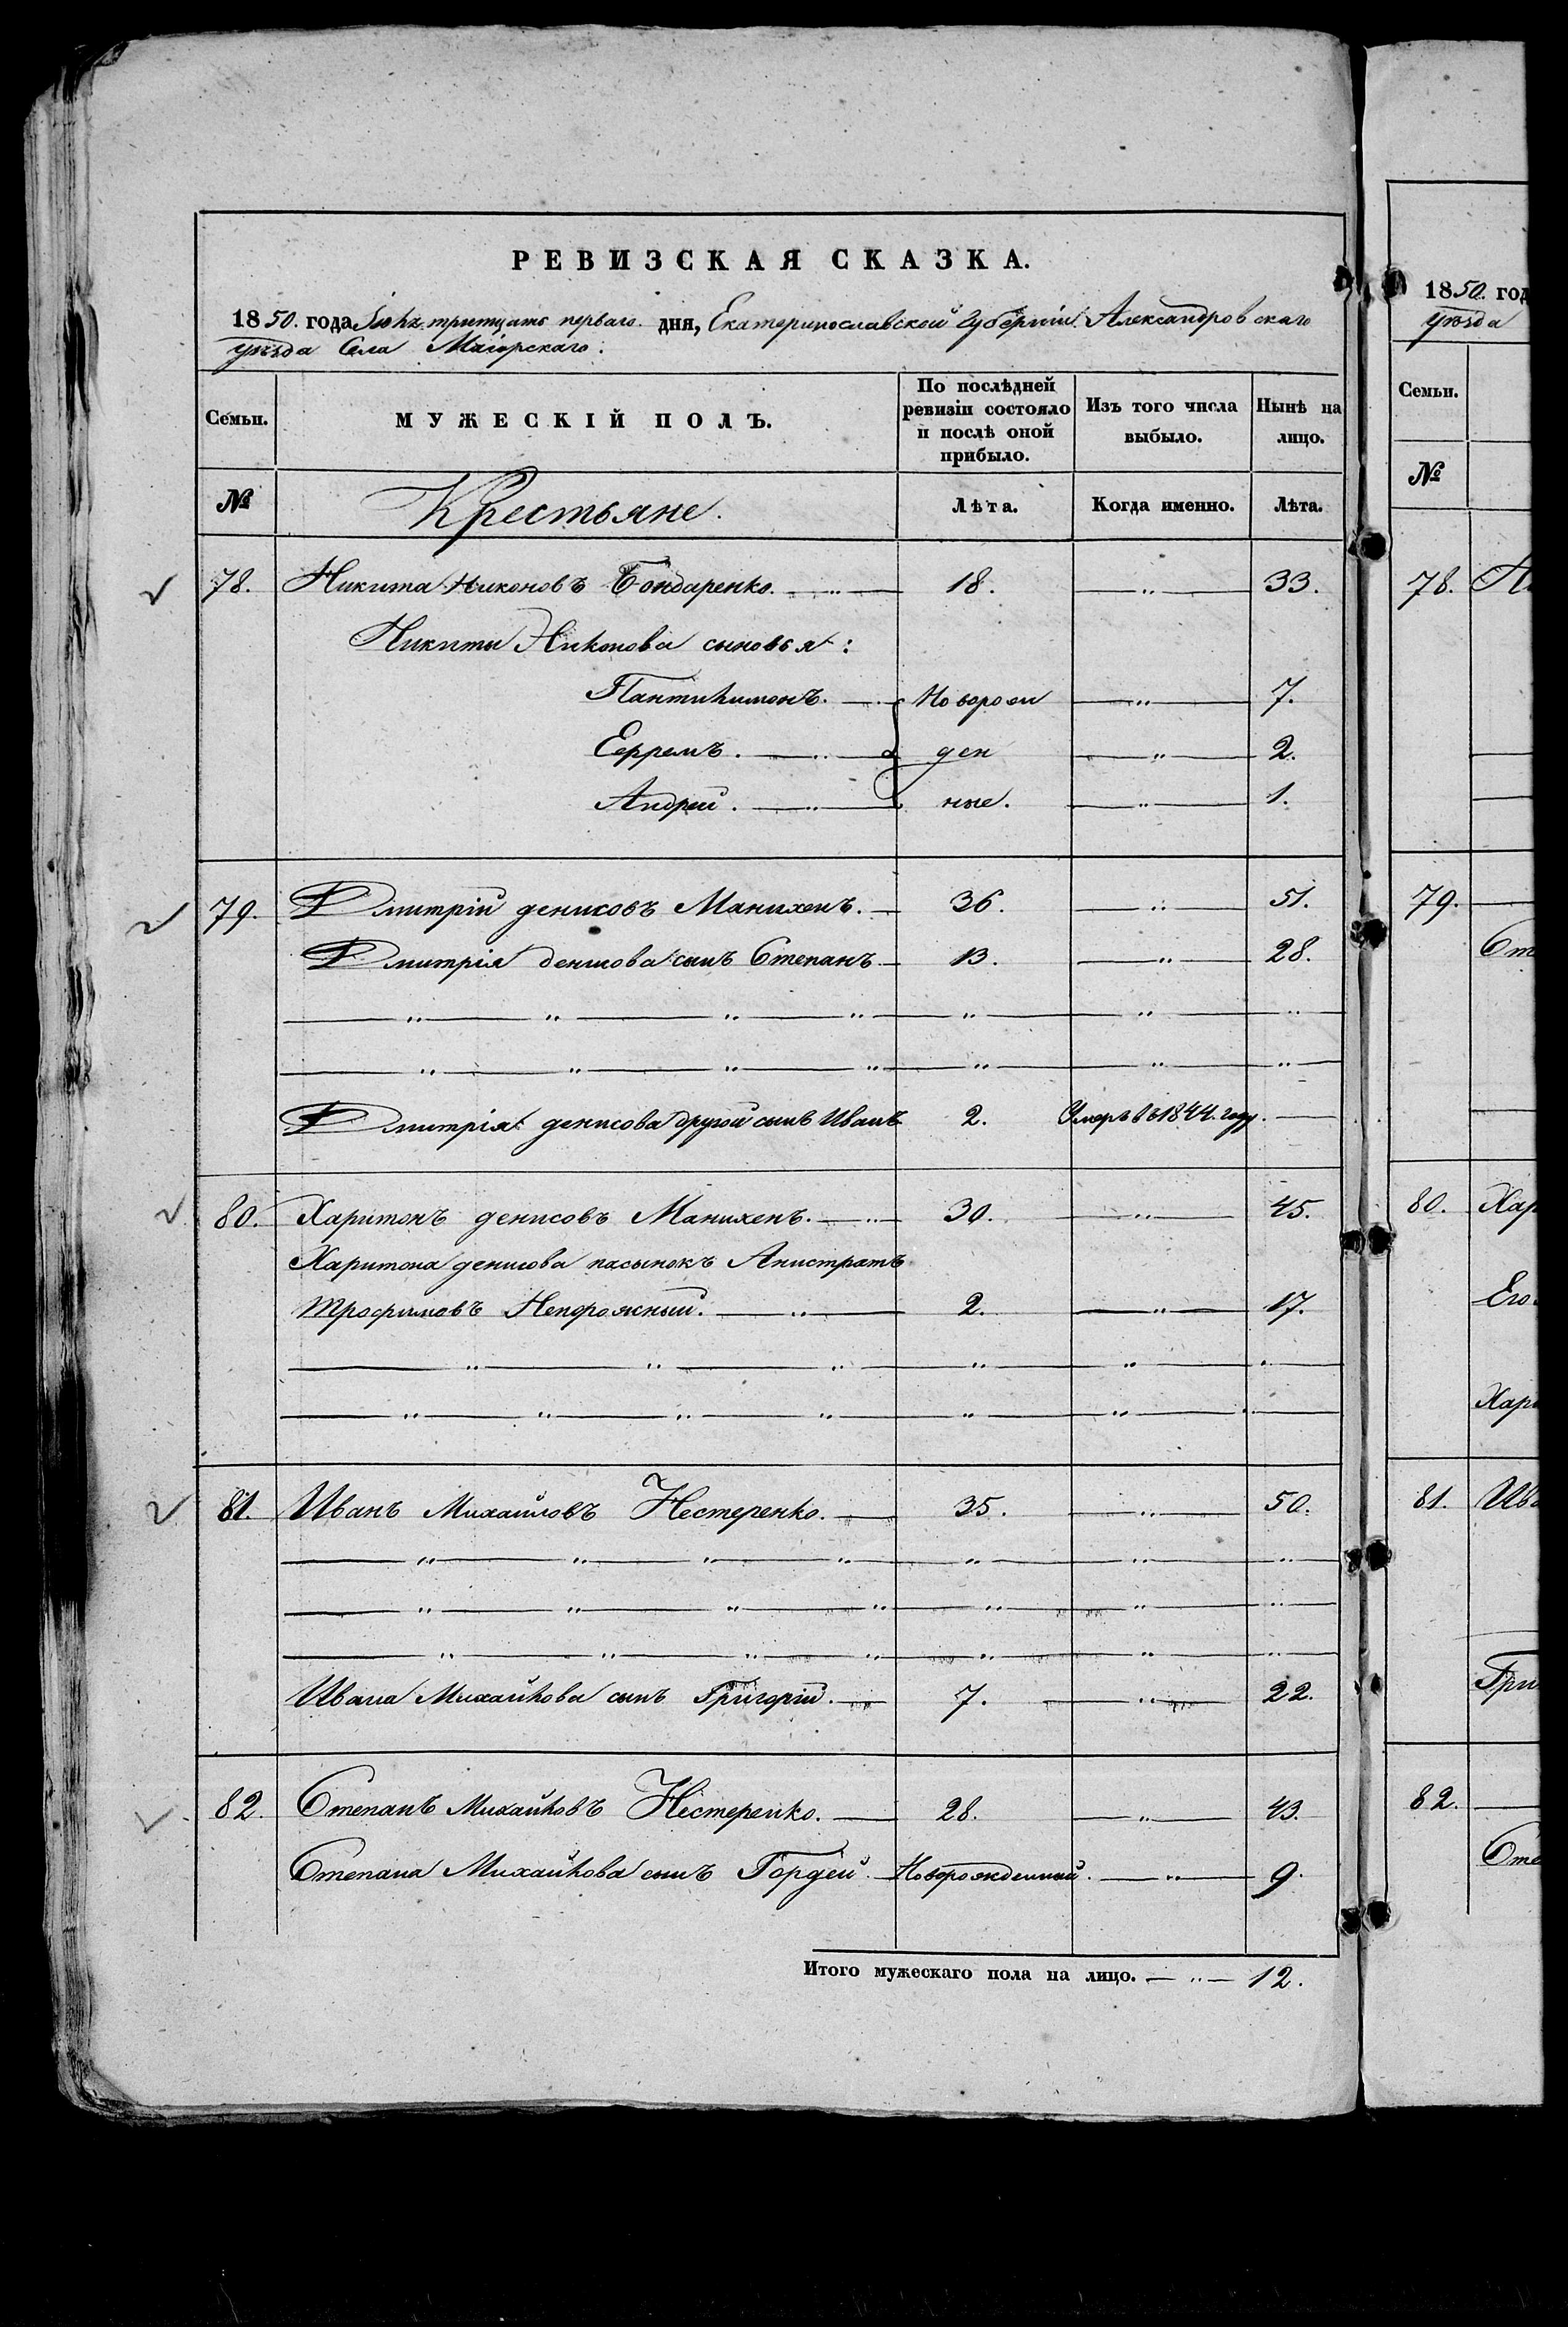 РЕВИЗСКАЯ СКАЗКА.
1850. года Іюля тритцать перваго. дня, Екатеринославской Губерніи Александровскаго
уѣзда Села Маіорскаго.
Семьи. МУЖЕСКІЙ ПОЛЪ. По послѣдней ревизіи состояло и послѣ оной прибыло. Изъ того числа выбыло. Нынѣ на лицо.
№ Крестьяне. Лѣта. Когда именно. Лѣта.
78. Никита Никоновъ Бондаренко. — " — 18. — " — 33.
Никиты Никонова сыновья:
Пантилимонъ. — Новорож — " — 7.
Ефремъ. — " — ден — " — 2.
Андрей. — " — ные. — " — 1.
79. Дмитрій денисовъ Манихенъ. — 36. — " — 51.
Дмитрія денисова сынъ Степанъ — 13. — " — 28.
— " — " — " — " — " — " — "
— " — " — " — " — " — " — "
Дмитрія денисова другой сынъ Иванъ 2. Умеръ въ 1844. году. —
80. Харитонъ денисовъ Манихенъ. — " — 30. — " — 45.
Харитона денисова пасынокъ Анистратъ
Трофимовъ Непорожный. — " — 2. — " — 17.
— " — " — " — " — " — "
— " — " — " — " — " — " —
81. Иванъ Михайловъ Нестеренко. — 35. — " — 50.
— " — " — " — " — " — " — "
— " — " — " — " — " — " — "
— " — " — " — " — " — " — "
Ивана Михайлова сынъ Григорій. — 7. — " — 22.
82. Степанъ Михайловъ Нестеренко. — 28. — " — 43.
Степана Михайлова сынъ Гордѣй. — Новорожденный. — " — 9.
Итого мужескаго пола на лицо. — " — 12.
1850. год
уѣзда
Семьи.
№
78.
79.
80. Хар
Его
Хар
81. Ива
Гри
82.
Сте